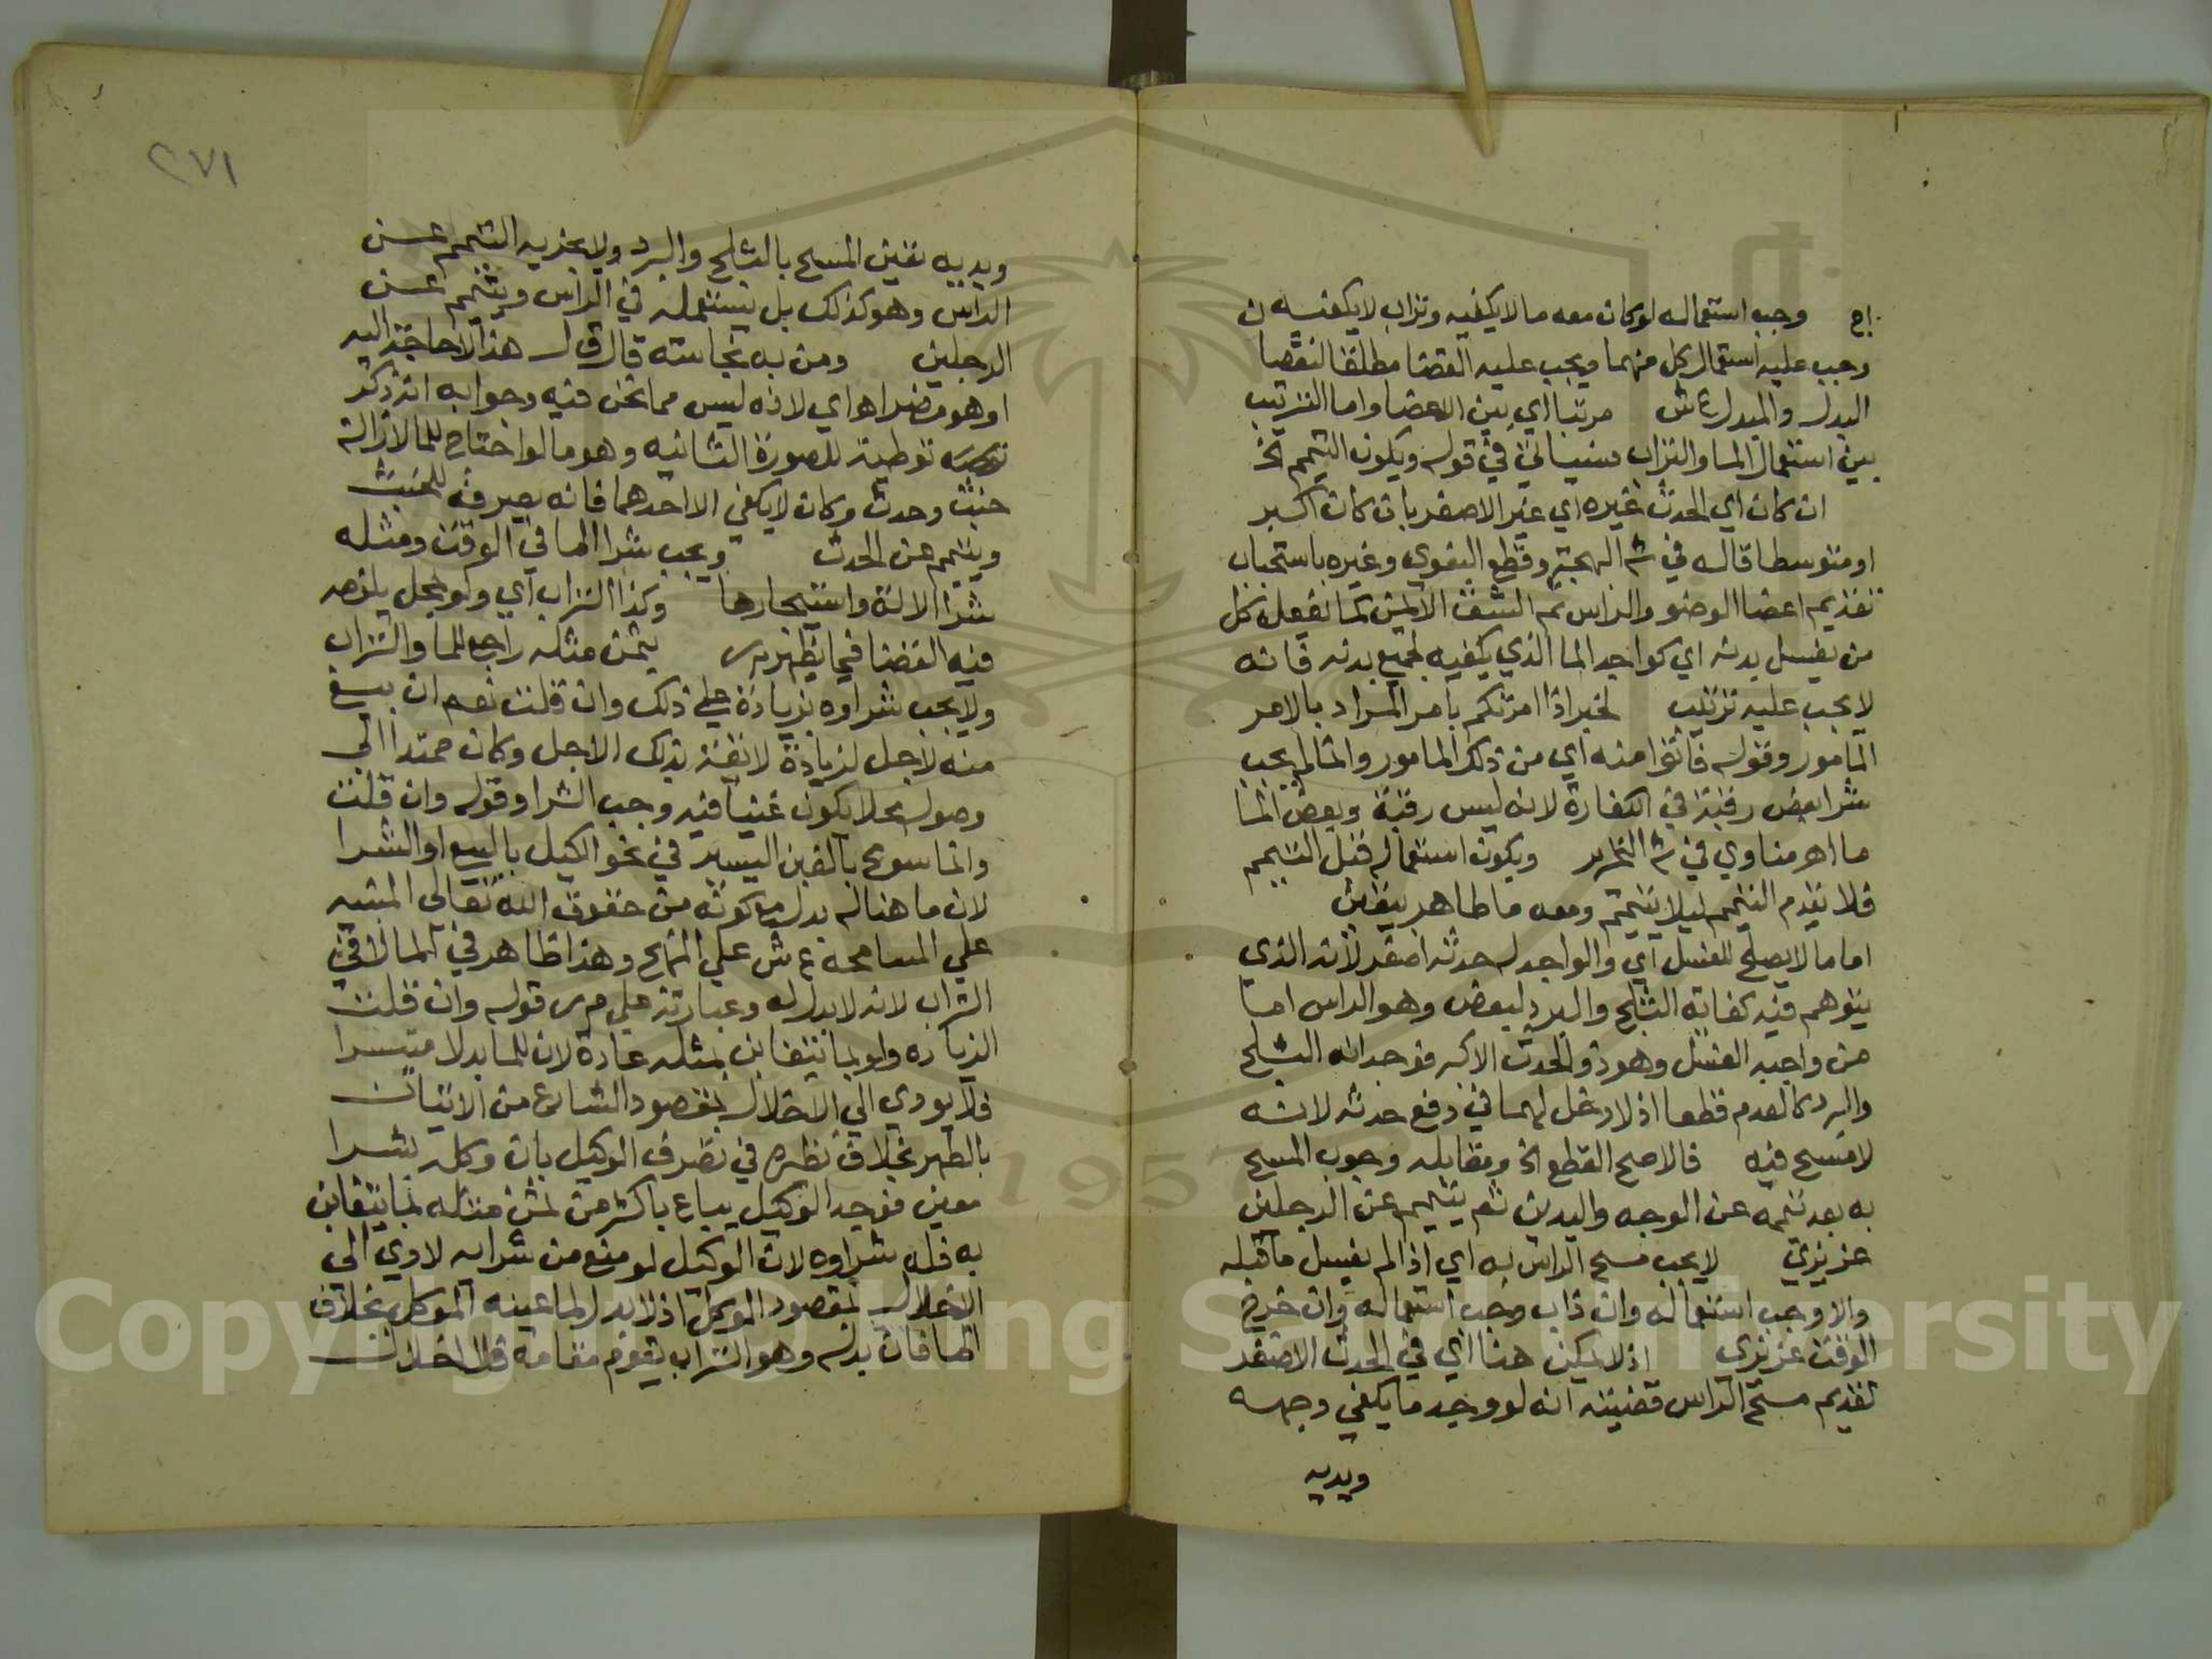 اج وجب استعماله لو كان معه ما لا يكفيه وتراب لا يكفيه
وجب عليه استعمال كل منهما ويجب عليه القضا مطلقا لنقصا
البدل والمبدل ع ش مرتبا اي بين الاعضا واما الترتيب
بين استعمال الما والتراب فسياتي في قوله ويكون التيمم الخ
ان كان اي الحدث غيره اي غير الاصغر بان كان اكبر
او متوسطا قاله في ش البهجة وقطع البغوي وغيره باستحباب
تقديم اعضا الوضو والراس ثم الشق الايمن كما يفعله كل
من يغسل بدنه اي كواجد الما الذي يكفيه لجميع بدنه فانه
لا يجب عليه ترتيب لخبر اذا امرتكم بامر المراد بالامر
المامور وقوله فاتوا منه اي من ذلك المامور وانما لم يجب
شرا بعض رقبة في الكفارة لانه ليس رقبة وبعض الما
ما اهر مناوي في ش التحرير ويكون استعماله قبل التيمم
فلا يقدم التيمم ليلا يتيمم ومعه ما طاهر بيقين
اما ما لا يصلح للغسل اي والواجد له حدثه اصغر لانه الذي
يتوهم فيه كفاية الثلج والبرد لبعض وهو الراس اما
من واجبه الغسل وهو ذو الحدث الاكبر فوجدانه الثلج
والبرد كالعدم قطعا اذ لا دخل لهما في رفع حدثه لانه
لا مسح فيه فالاصح القطع الخ ومقابله وجوب المسح
به بعد تيممه عن الوجه واليدين ثم يتيمم عن الرجلين
عزيزي لا يجب مسح الراس به اي اذا لم يغسل ما قبله
والا وجب استعماله وان ذاب وجب استعماله وان خرج
الوقت عزيزي اذ لا يمكن هنا اي في الحدث الاصغر
تقديم مسح الراس قضيته انه لو وجد ما يكفي وجهه
ويديه
٢٧١
ويديه تعين المسح بالثلج والبرد ولا يجزيه التيمم عن
الراس وهو كذلك بل يستعمله في الراس ويتيمم عن
الرجلين ومن به نجاسته قال ق ل هذا لا حاجة اليه
او هو مضر اهـ اي لانه ليس مما نحن فيه وجوابه انه ذكر
توطية للصورة الثانيه وهو ما لو احتاج للما لازالة
خبث وحدث وكان لا يكفي الا احدهما فانه يصرفه للخبث
ويتيمم عن الحدث ويجب شرا الما في الوقت ومثله
شرا الالة واستيجارها وكذا التراب اي ولو بمحل يلزمه
فيه القضا فيما يظهر م ر بثمن مثله راجع للما والتراب
ولا يجب شراوه بزيادة علي ذلك وان قلت نعم ان بيع
منه لاجل لزيادة لائقة بذلك الاجل وكان ممتدا الي
وصوله محلا يكون غنيا فيه وجب الشرا وقوله وان قلت
وانما سومح بالغبن اليسير في نحو الوكيل بالبيع او الشرا
لان ما هنا له بدل مع كونه من حقوق الله تعالي المبنيه
علي المسامحه ع ش علي المنهج وهذا ظاهر في الما لا في
التراب لانه لا بدل له وعبارته علي م ر قوله وان قلت
الزياده ولو بما يتغابن بمثله عادة لان للما بدلا متيسرا
فلا يودي الي الاخلال بمقصود الشارع من الاتيان
بالطهر بخلاف نظيره في تصرف الوكيل بان وكله بشرا
معين فوجد الوكيل يباع باكثر من ثمن مثله بما يتغابن
به فله شراوه لان الوكيل لو منع من شرايه لادي الي
الاخلال بمقصود الموكل اذ لا بدل لما عينه الموكل بخلاف
الما فان بدله وهو التراب يقوم مقامه فلا اخلال